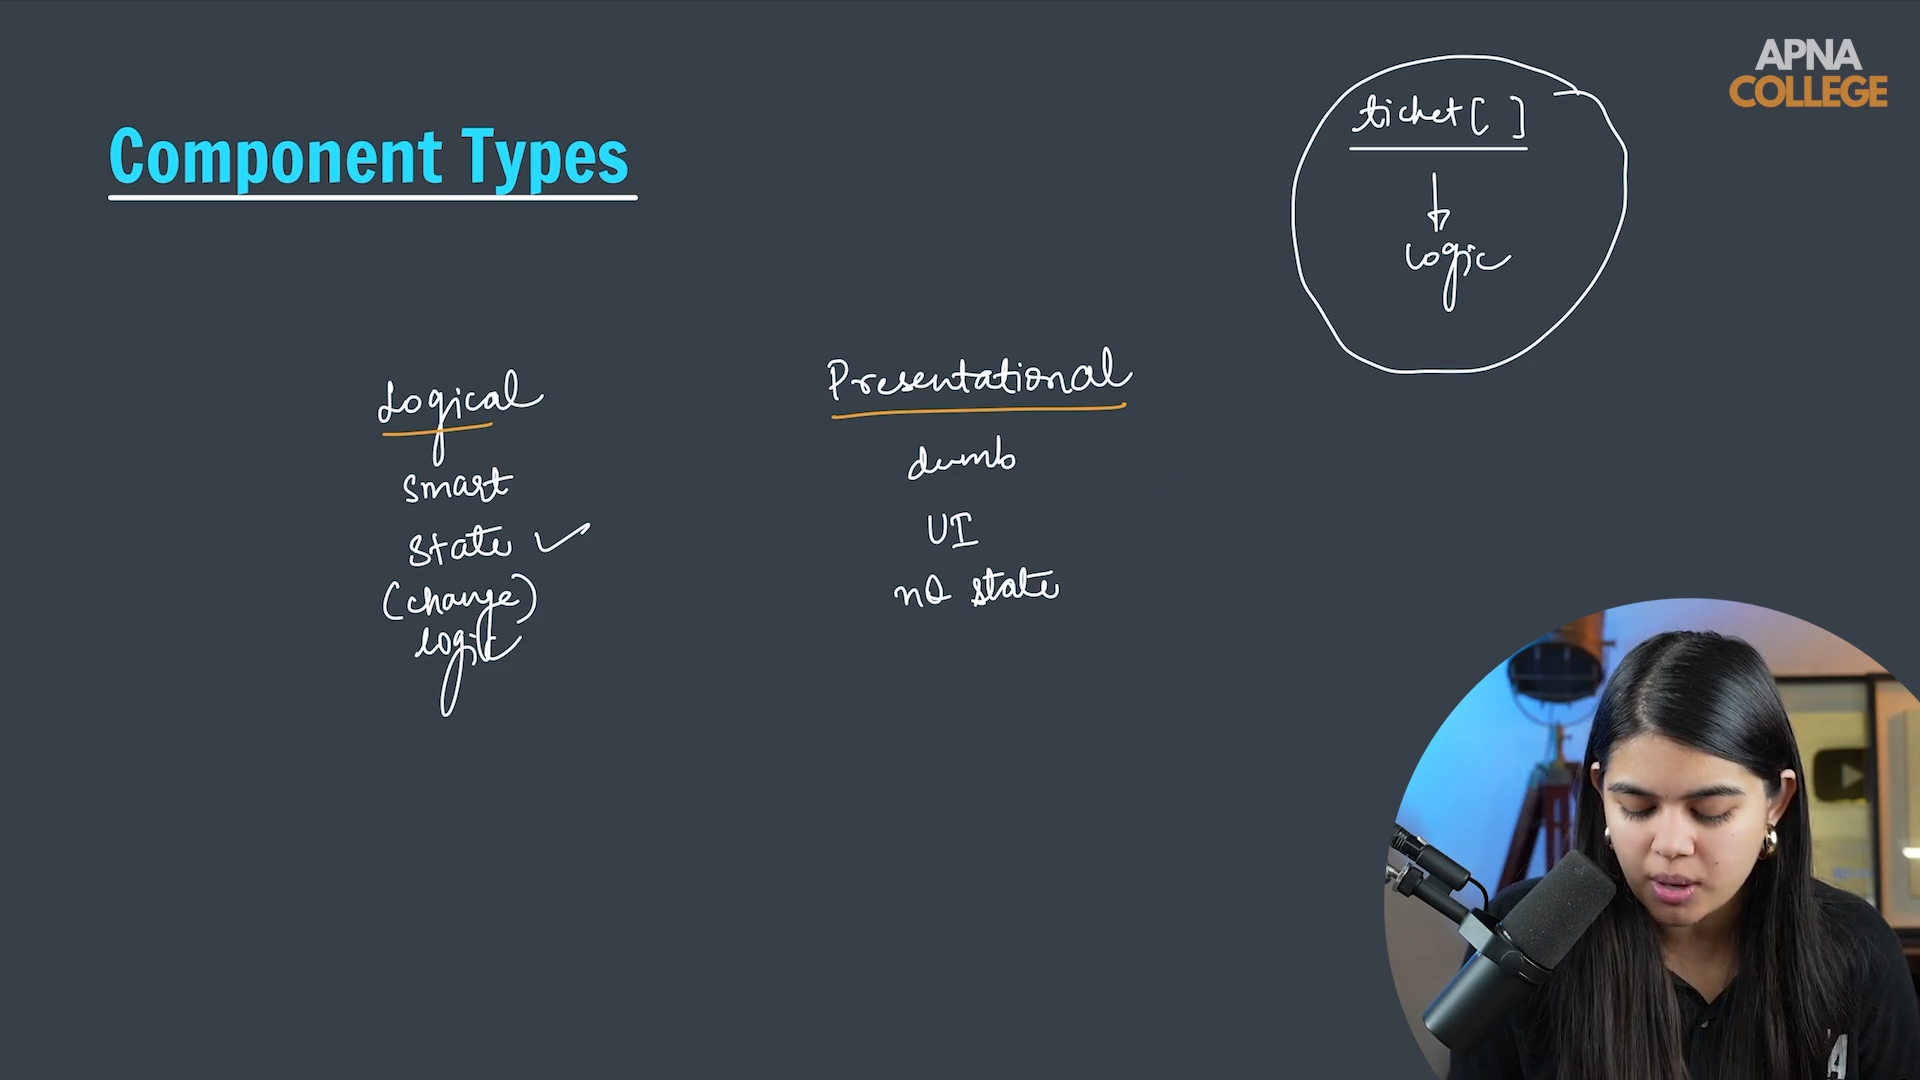 APNA
COLLEGE
Component Types
ticket[ ]
logic
Logical
smart
state ✓
(change)
logic
Presentational
dumb
UI
no state